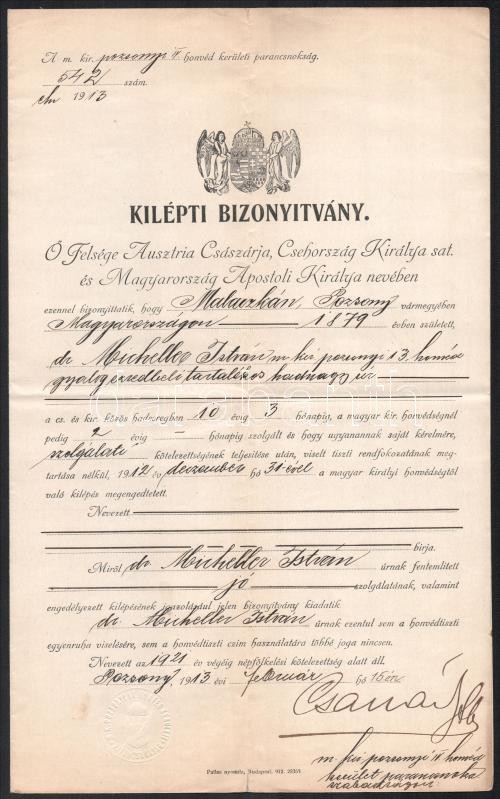 A m. kir. pozsonyi IV honvéd kerületi parancsnokság.
542 szám.
eln 1913
KILÉPTI BIZONYITVÁNY.
Ő Felsége Ausztria Császárja, Csehország Királya sat.
és Magyarország Apostoli Királya nevében
ezennel bizonyittatik, hogy Malaczkán, Pozsony vármegyében
Magyarországon 1879 évben született,
dr Micheller István m. kir. pozsonyi 13. honvéd
gyalogezredbeli tartalékos hadnagy úr
a cs. és kir. közös hadseregben 10 évig 3 hónapig, a magyar kir. honvédségnél
pedig 2 évig — hónapig szolgált és hogy ugyanannak saját kérelmére,
szolgálati kötelezettségének teljesitése után, viselt tiszti rendfokozatának meg-
tartása nélkül, 1912 év deczember hó 31-ével a magyar királyi honvédségtől
való kilépés megengedtetett.
Nevezett
birja.
Miről dr. Micheller István úrnak fentemlitett
jó szolgálatának, valamint
engedélyezett kilépésének igazolásául jelen bizonyitvány kiadatik
dr. Micheller István úrnak ezentul sem a honvédtiszti
egyenruha viselésére, sem a honvédtiszti czim használatára többé joga nincsen.
Nevezett az 1921 év végéig népfölkelési kötelezettség alatt áll.
Pozsony, 1913 évi február hó 15én
m. kir. pozsonyi IV honvéd
kerület parancsnoka
szabadságon
Pallas nyomda, Budapest. 912.